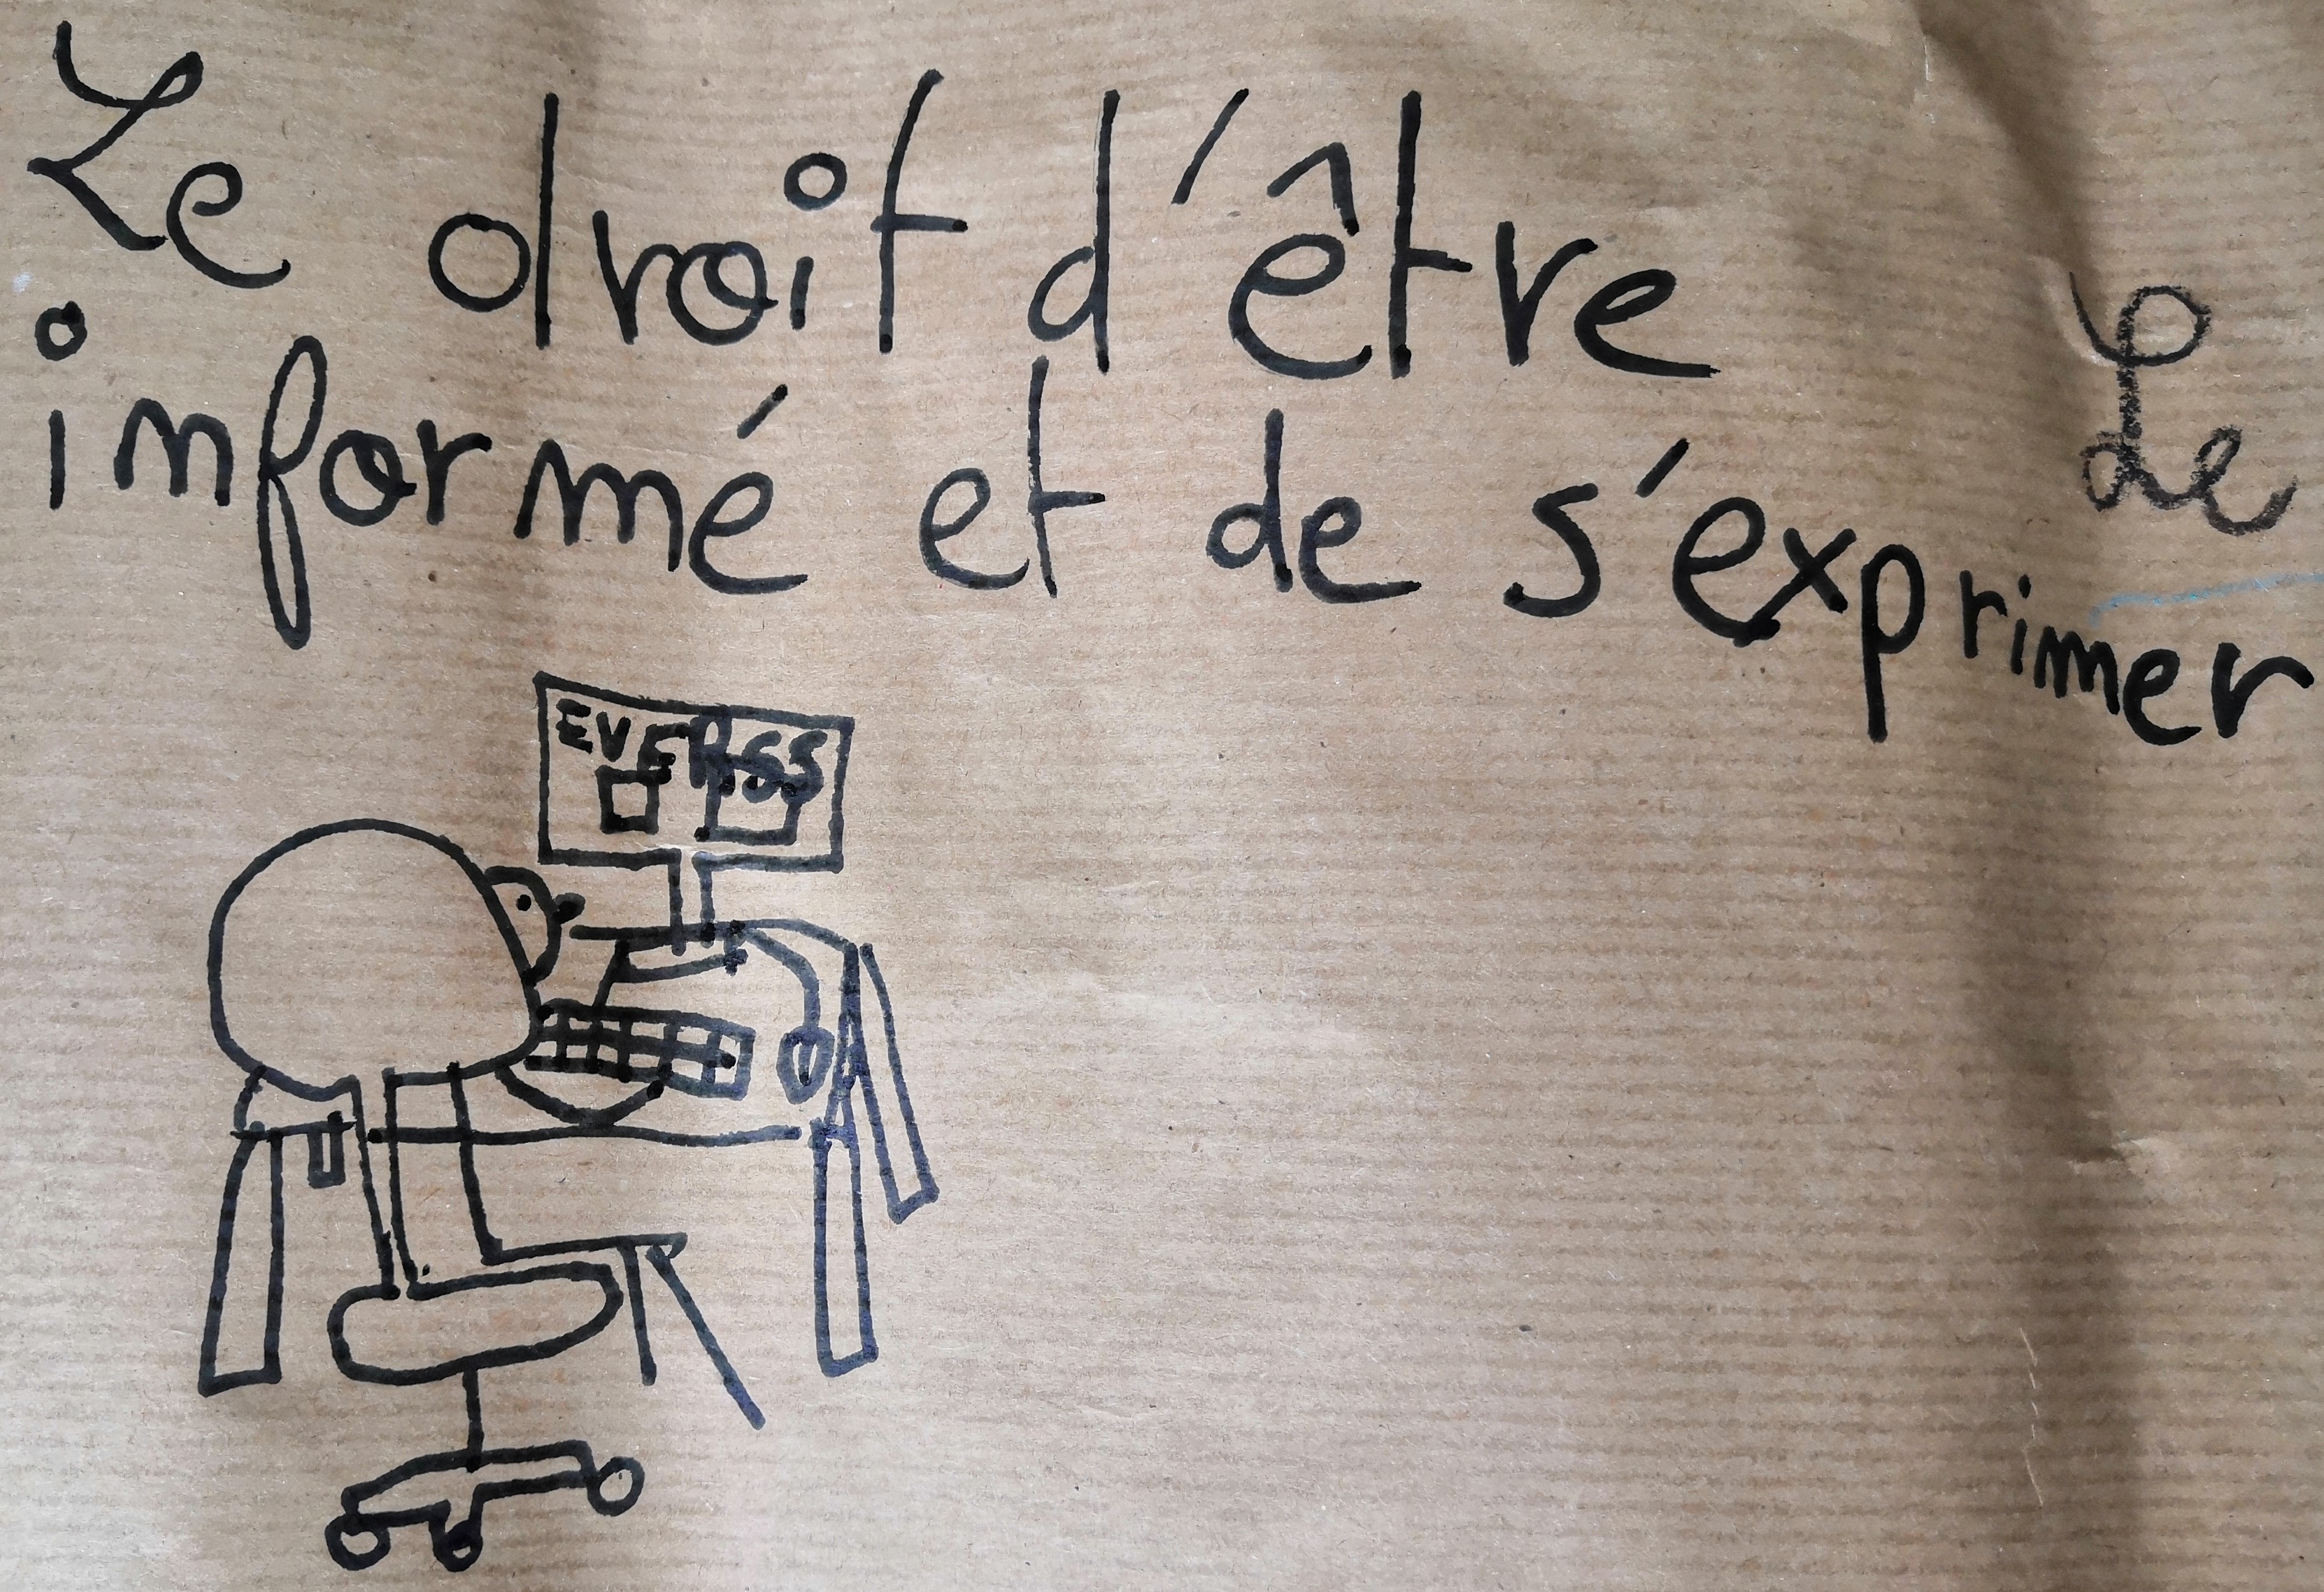 Le droit d'être
informé et de s'exprimer
Le